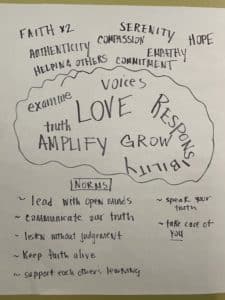 FAITH x2
SERENITY
HOPE
AUTHENTICITY
COMPASSION
EMPATHY
HELPING OTHERS
COMMITMENT
voices
examine
LOVE
RESPONSIBILITY
truth
AMPLIFY
GROW
NORMS
~ lead with open minds
~ communicate our truth
~ listen without judgement
~ Keep faith alive
~ support each others learning
~ speak your
truth
~ take care of
you